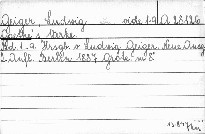 Geiger, Ludwig vide 1-9 A 28126
Goethe's Werke.
Bd. 1-9. Hrsgb v. Ludwig Geiger. Neue Ausg.
2. Aufl. Berlin 1887 Grote m 8°